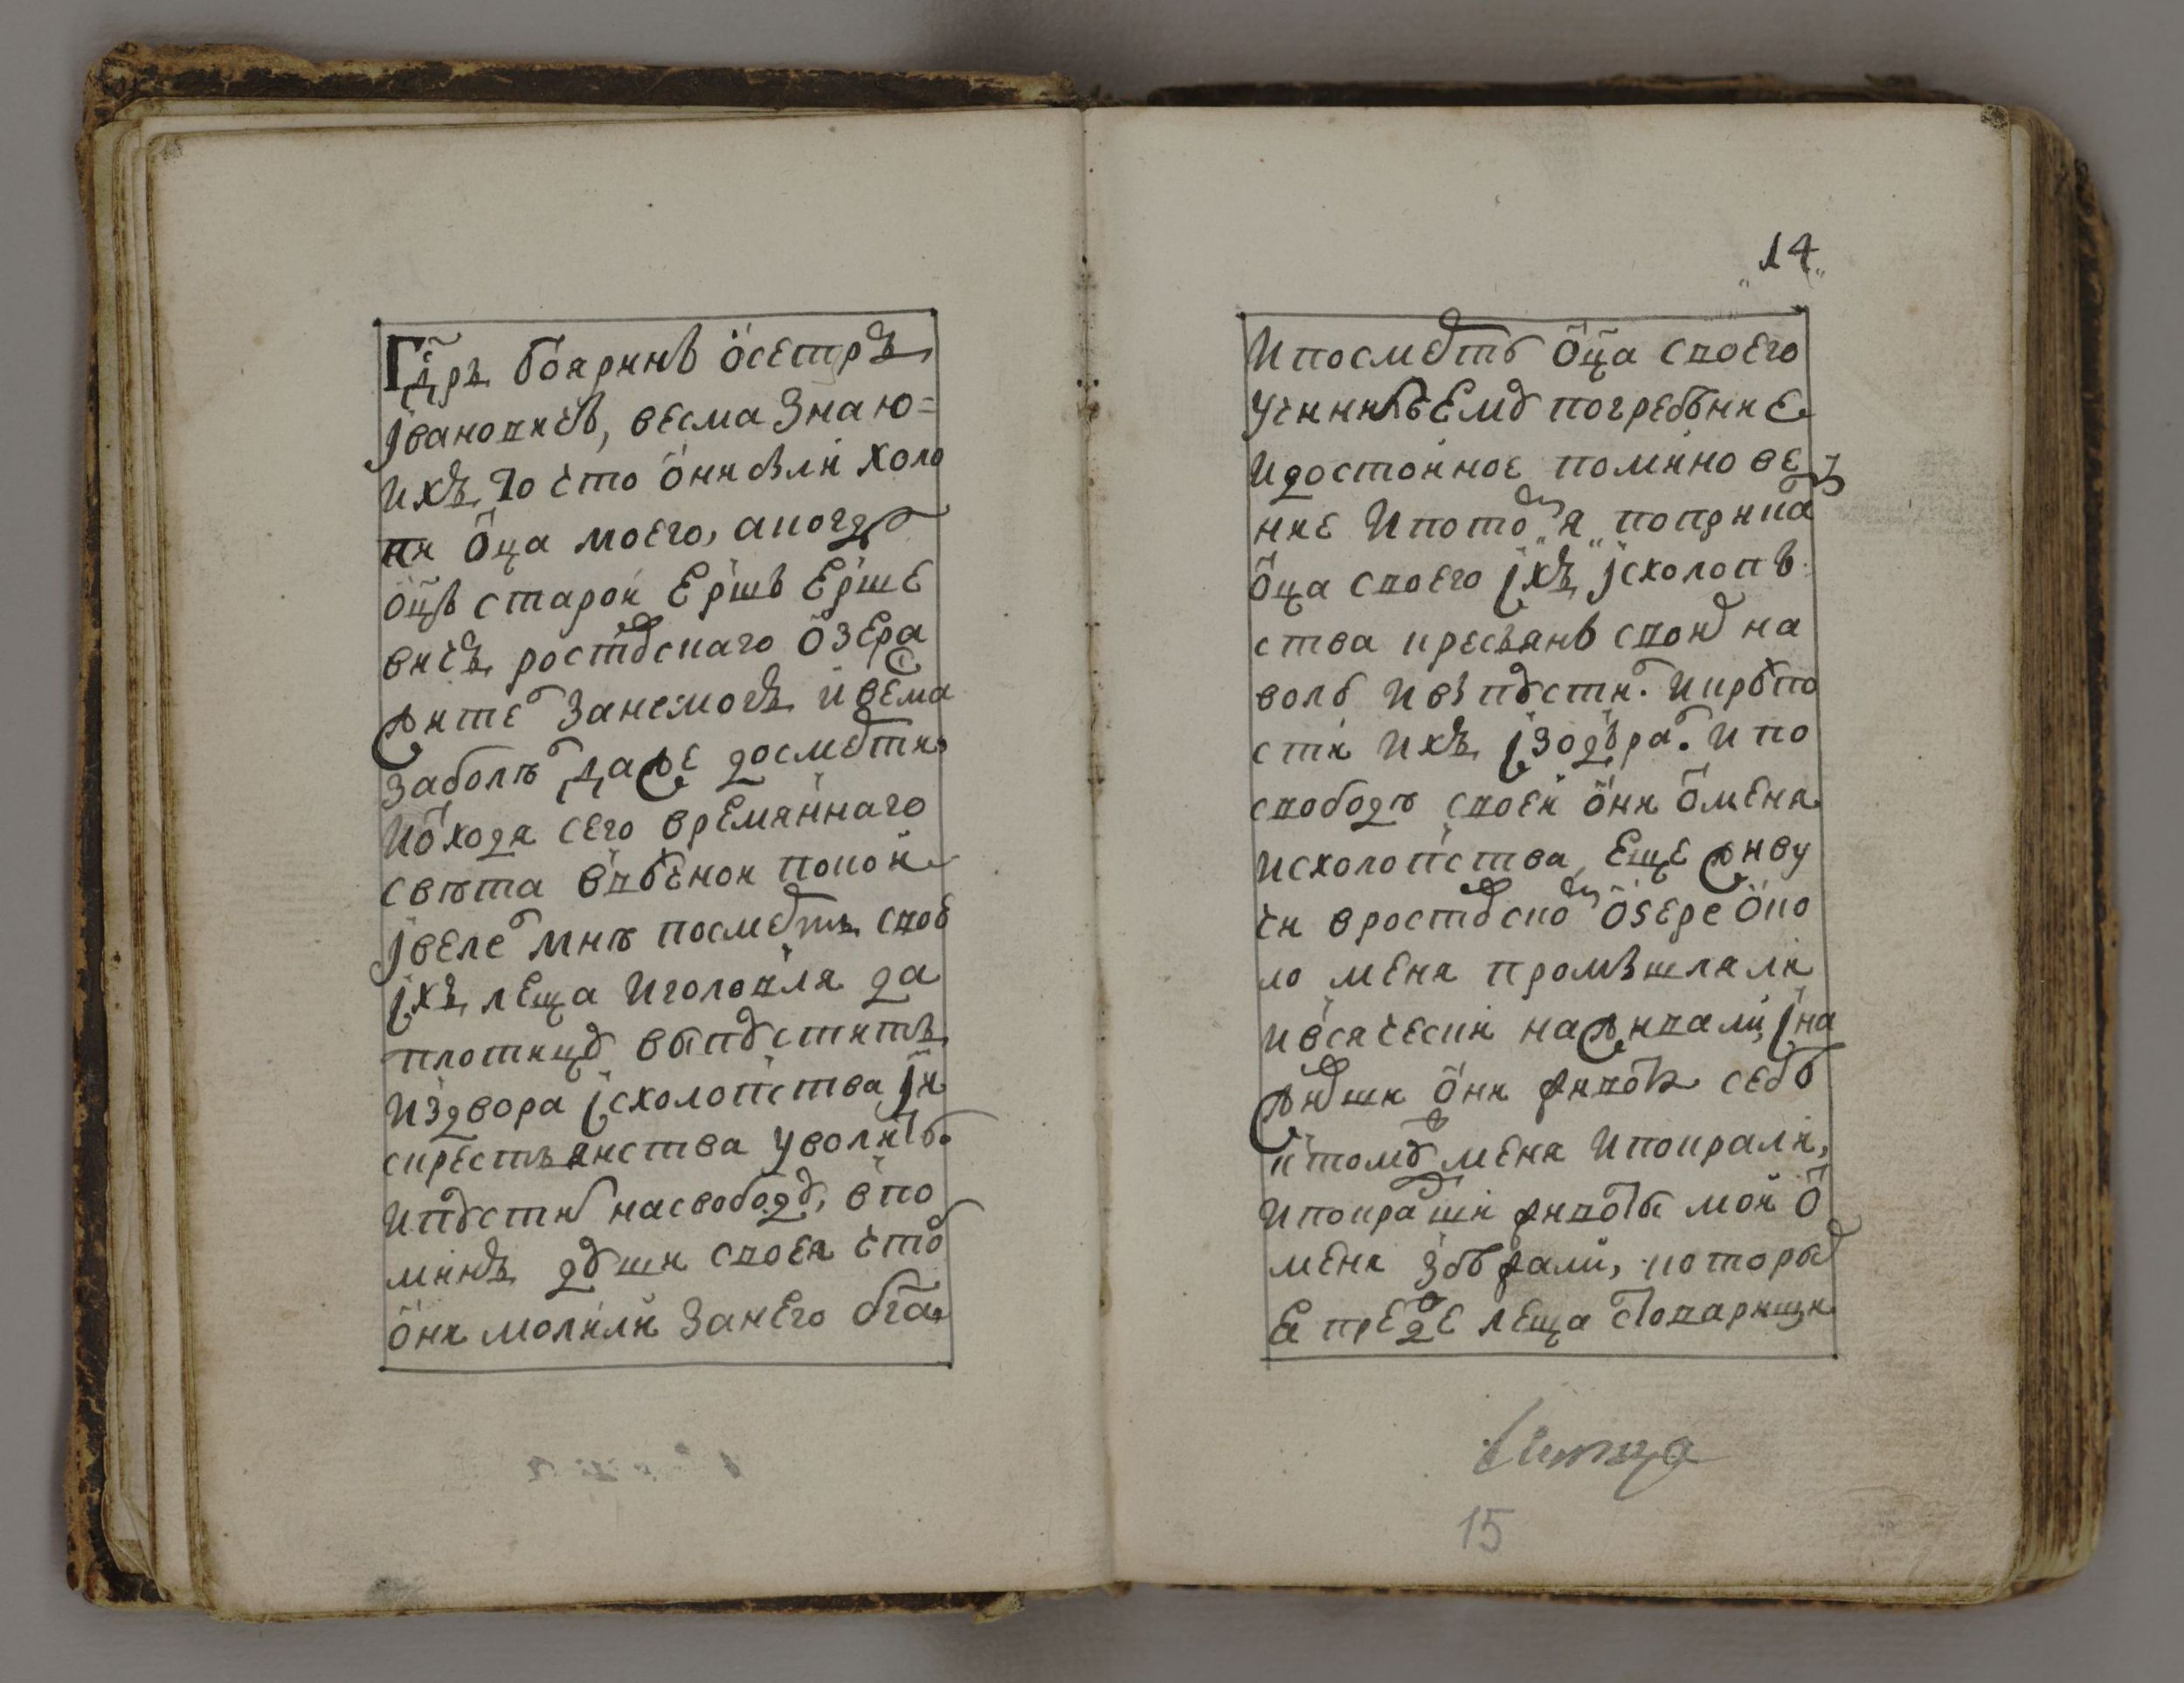 Гдⷭ҇рь бояринъ ѻсетръ
Івановичъ, весма знаю=
ихъ, То что ѻни были холо
пи ѻц҃а моего, а когда
ѻц҃ъ старой Ершъ Ерше
вичь ростовскаго ѻзера
жите занемогъ и весма
заболѣ даже до смерти
И ѿходя сего времяннаго
свѣта в вѣчной покой
Івеле мнѣ по смерти свое
іхъ леща И головля да
плотицу выпустить
Издвора ісхолопства ји
скрестьянства уволить.
Ипустит насвободу, впо
минъ души своея чтоб
ѻни молили Занего бг҃а.
14
И по смерти ѻц҃а своего
учинилъ Ему погребение
И достойное поминове
ние И потомъ я поприка
ѻц҃а своего іхъ јсхолоп
ства и кресьянъ своих на
волю И выпустил. И крѣпо
сти ихъ ізодра. И по
свободѣ своей ѻни ѻ мѣня
исхолопства, Еще живу
чи в ростовском ѻзере ѻко
ло меня промышляли
и всяческий наживали, іна
живши ѻни животъ себѣ
и тому меня И покрали,
И покравши животы мои ѻ
меня збѣжали, которы
Е прежде леща с товарищи
15